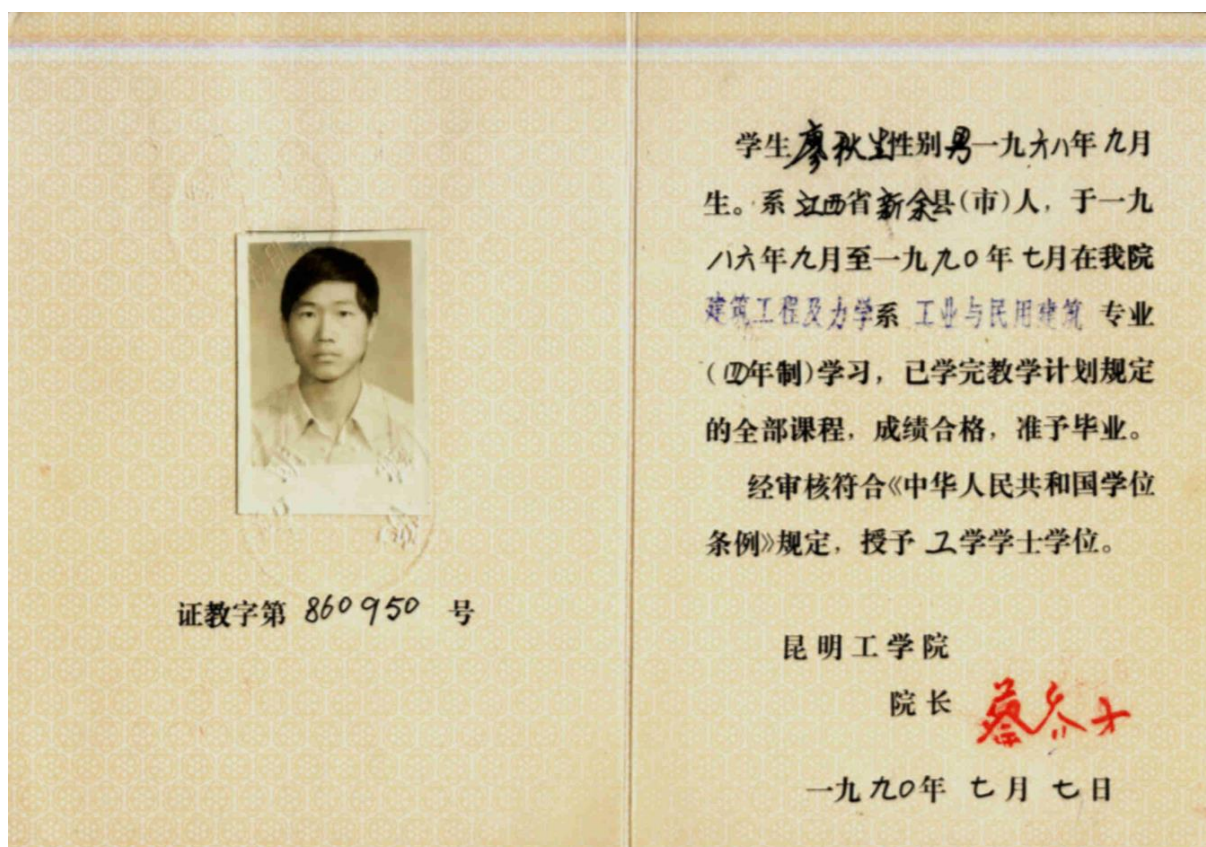 证教字第 860950 号
学生廖秋生性别男一九六八年九月
生。系江西省新余县(市)人，于一九
八六年九月至一九九〇年七月在我院
建筑工程及力学系 工业与民用建筑 专业
(四年制)学习，已学完教学计划规定
的全部课程，成绩合格，准予毕业。
经审核符合《中华人民共和国学位
条例》规定，授予 工学学士学位。
昆明工学院
院长 蔡乔方
一九九〇年 七月 七日